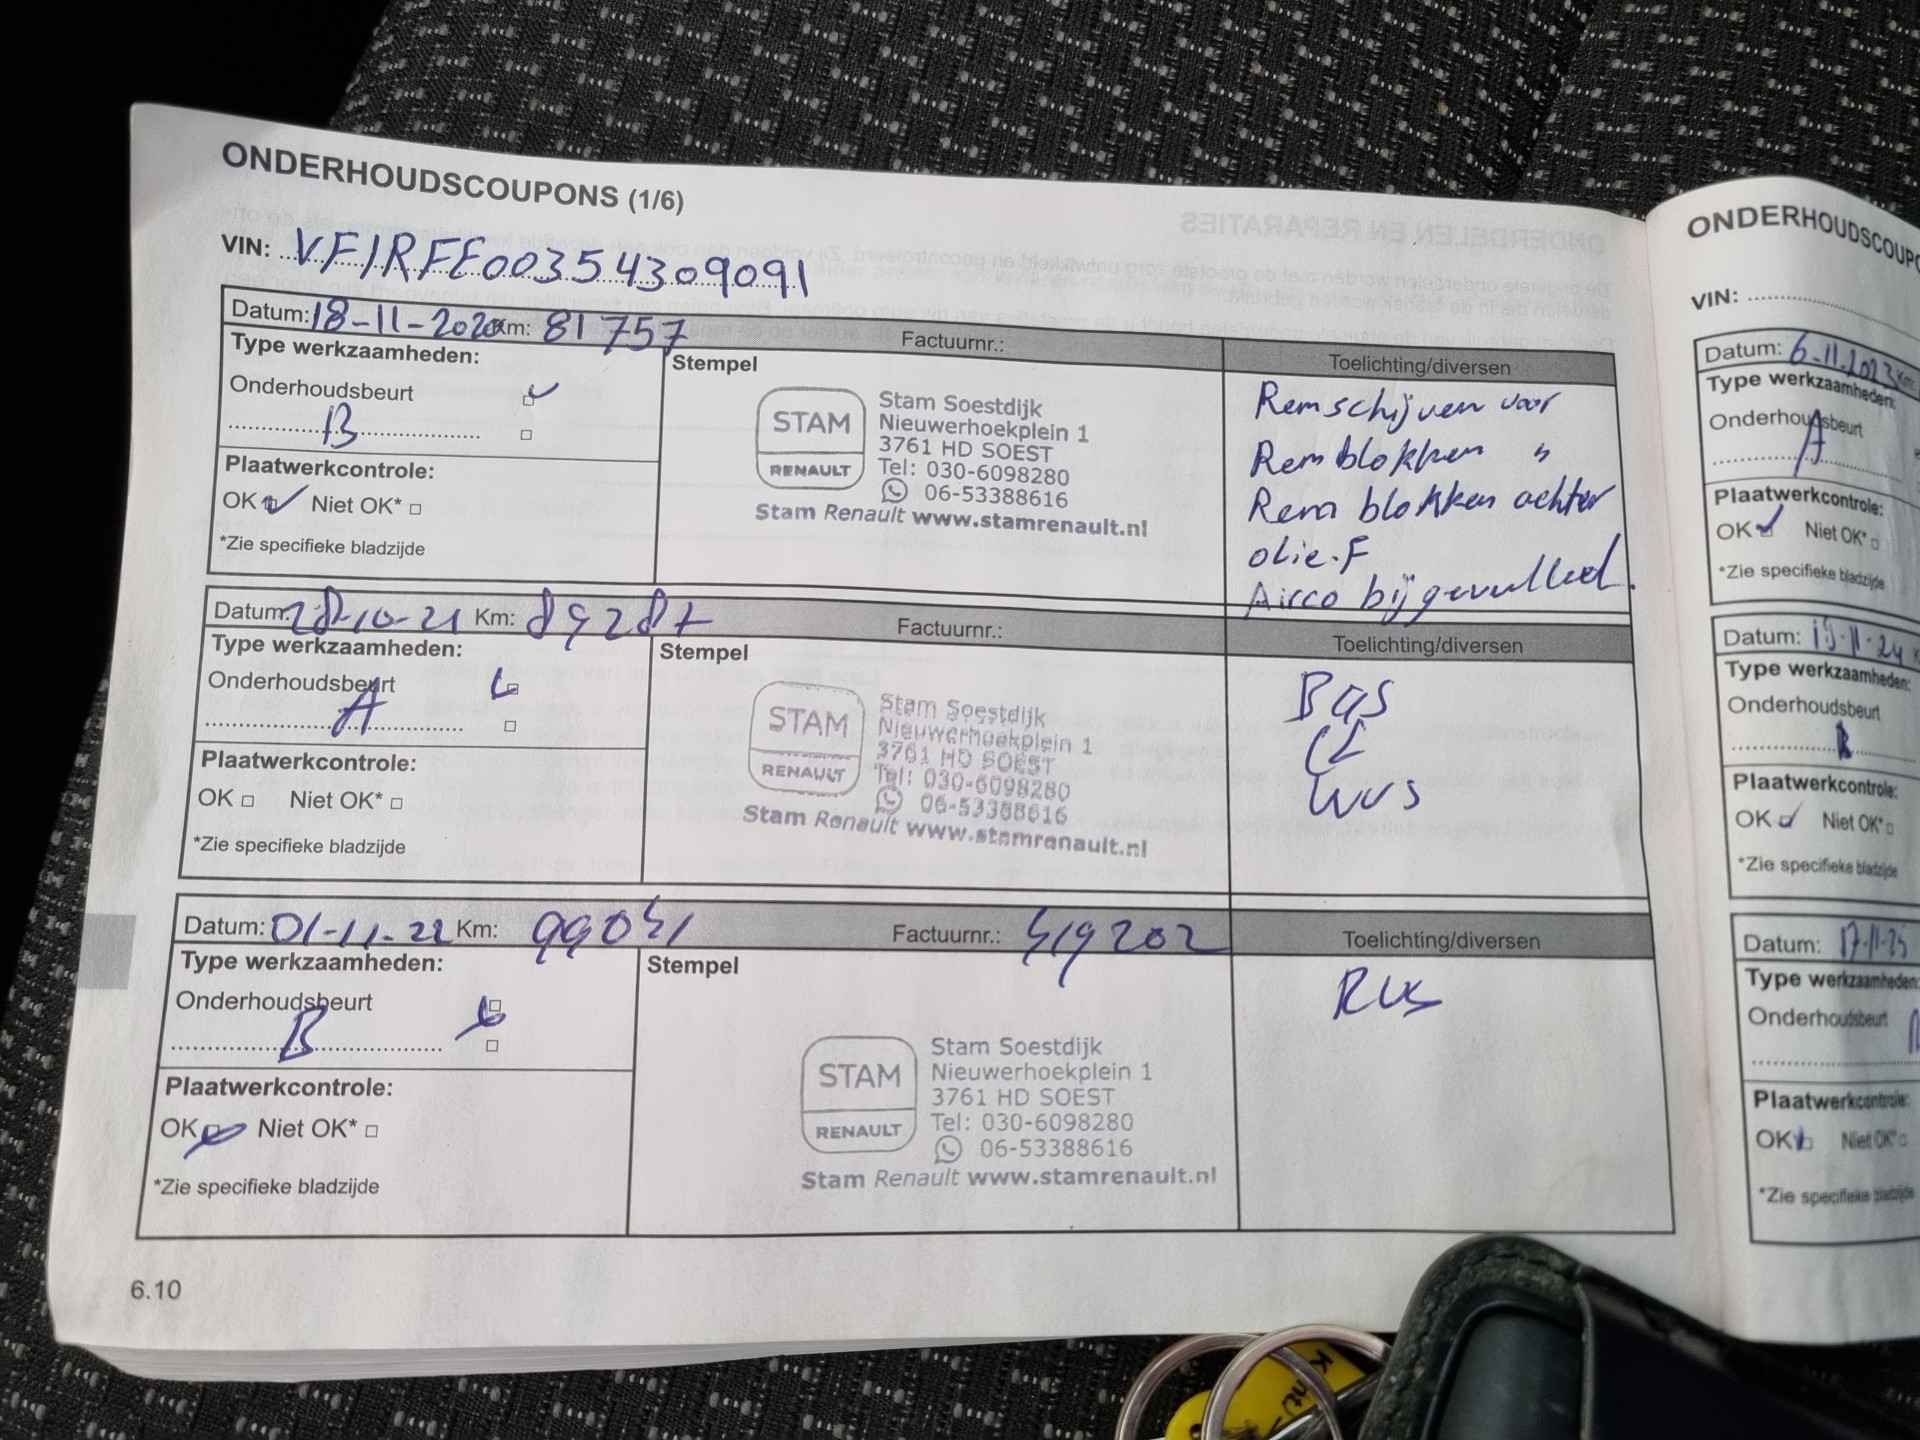 ONDERHOUDSCOUPONS (1/6)
VIN: VF1RFE00354309091
Datum: 18-11-2020 Km: 81757 Factuurnr.: Toelichting/diversen
Type werkzaamheden:
Onderhoudsbeurt
B
Plaatwerkcontrole:
OK Niet OK*
*Zie specifieke bladzijde
Stempel
STAM
RENAULT
Stam Soestdijk
Nieuwerhoekplein 1
3761 HD SOEST
Tel: 030-6098280
06-53388616
Stam Renault www.stamrenault.nl
Remschijven voor
Remblokken "
Rem blokken achter
olie.F
Airco bijgevulled.
Datum: 28-10-21 Km: 89287 Factuurnr.: Toelichting/diversen
Type werkzaamheden:
Onderhoudsbeurt
A
Plaatwerkcontrole:
OK Niet OK*
*Zie specifieke bladzijde
Stempel
STAM
RENAULT
Stam Soestdijk
Nieuwerhoekplein 1
3761 HD SOEST
Tel: 030-6098280
06-53388616
Stam Renault www.stamrenault.nl
Datum: 01-11-22 Km: 99051 Factuurnr.: 519202 Toelichting/diversen
Type werkzaamheden:
Onderhoudsbeurt
B
Plaatwerkcontrole:
OK Niet OK*
*Zie specifieke bladzijde
Stempel
STAM
RENAULT
Stam Soestdijk
Nieuwerhoekplein 1
3761 HD SOEST
Tel: 030-6098280
06-53388616
Stam Renault www.stamrenault.nl
6.10
ONDERHOUDSCOUPO
VIN:
Datum: 6-11-2023 Km:
Type werkzaamheden:
Onderhoudsbeurt
A
Plaatwerkcontrole:
OK Niet OK*
*Zie specifieke bladzijde
Datum: 19-11-24
Type werkzaamheden:
Onderhoudsbeurt
B
Plaatwerkcontrole:
OK Niet OK*
*Zie specifieke bladzijde
Datum: 17-11-25
Type werkzaamheden:
Onderhoudsbeurt
Plaatwerkcontrole:
OK Niet OK*
*Zie specifieke bladzijde